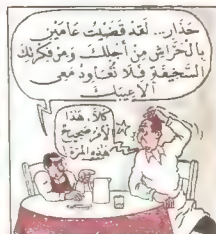 حَذَارِ... لَقَدْ قَضَيْتُ عَامَيْنِ
بِالْحَرَاشِ مِنْ أَجْلِكَ وَمِنْ فِكْرَتِكَ
السَّخِيفَةِ فَلاَ تُعَاوِدْ مَعِي
أَلاَعِيبَكَ
كَلاَّ، هَذَا
هَذِهِ الْمَرَّةَ